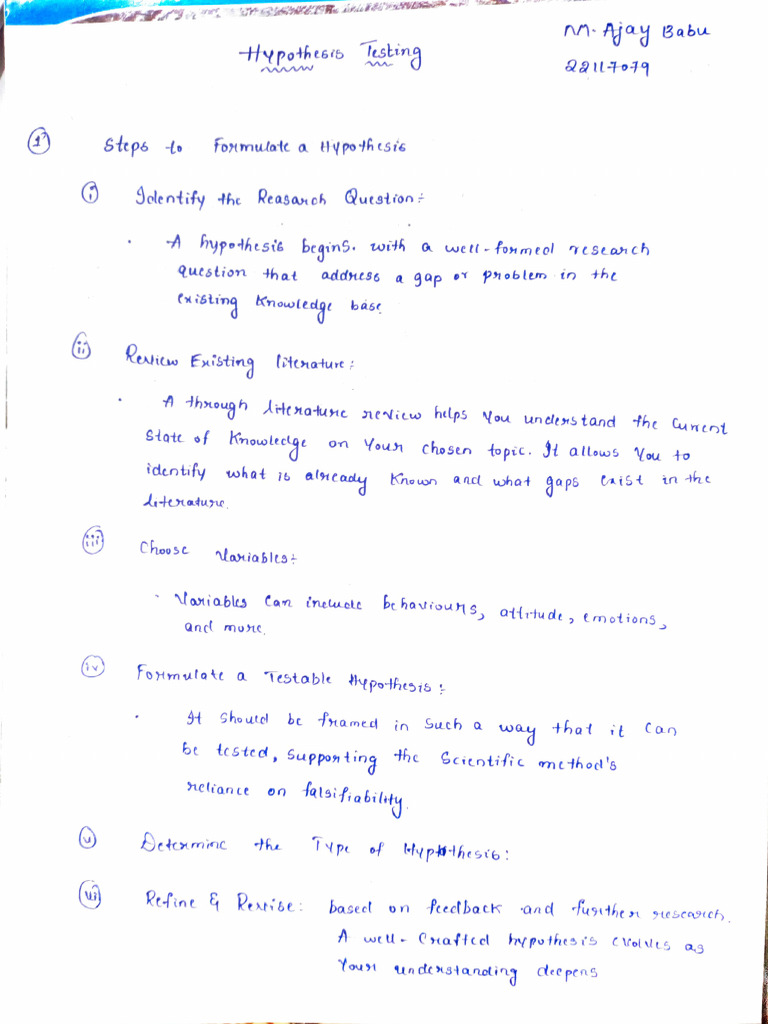 M. Ajay Babu
Hypothesis Testing
22117079
1) Steps to Formulate a Hypothesis
i Identify the Reasarch Question:-
· A hypothesis begins. with a well-formed research
question that address a gap or problem in the
existing knowledge base
ii Review Existing literature:
· A through literature review helps you understand the current
State of Knowledge on Your chosen topic. It allows You to
identify what is already Known and what gaps exist in the
literature.
iii Choose Variables:-
· Variables Can include behaviours, attitude, emotions,
and more.
iv Formulate a Testable Hypothesis:
· It should be framed in Such a way that it Can
be tested, Supporting the Scientific method's
reliance on falsifiability.
v Determine the Type of Hypothesis:
vi Refine & Revise: based on feedback and further research.
A well-Crafted hypothesis evolves as
Your understanding deepens